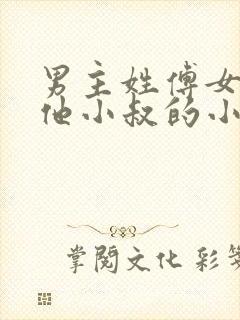 男主姓傅女
他小叔的小
掌阅文化 彩笺